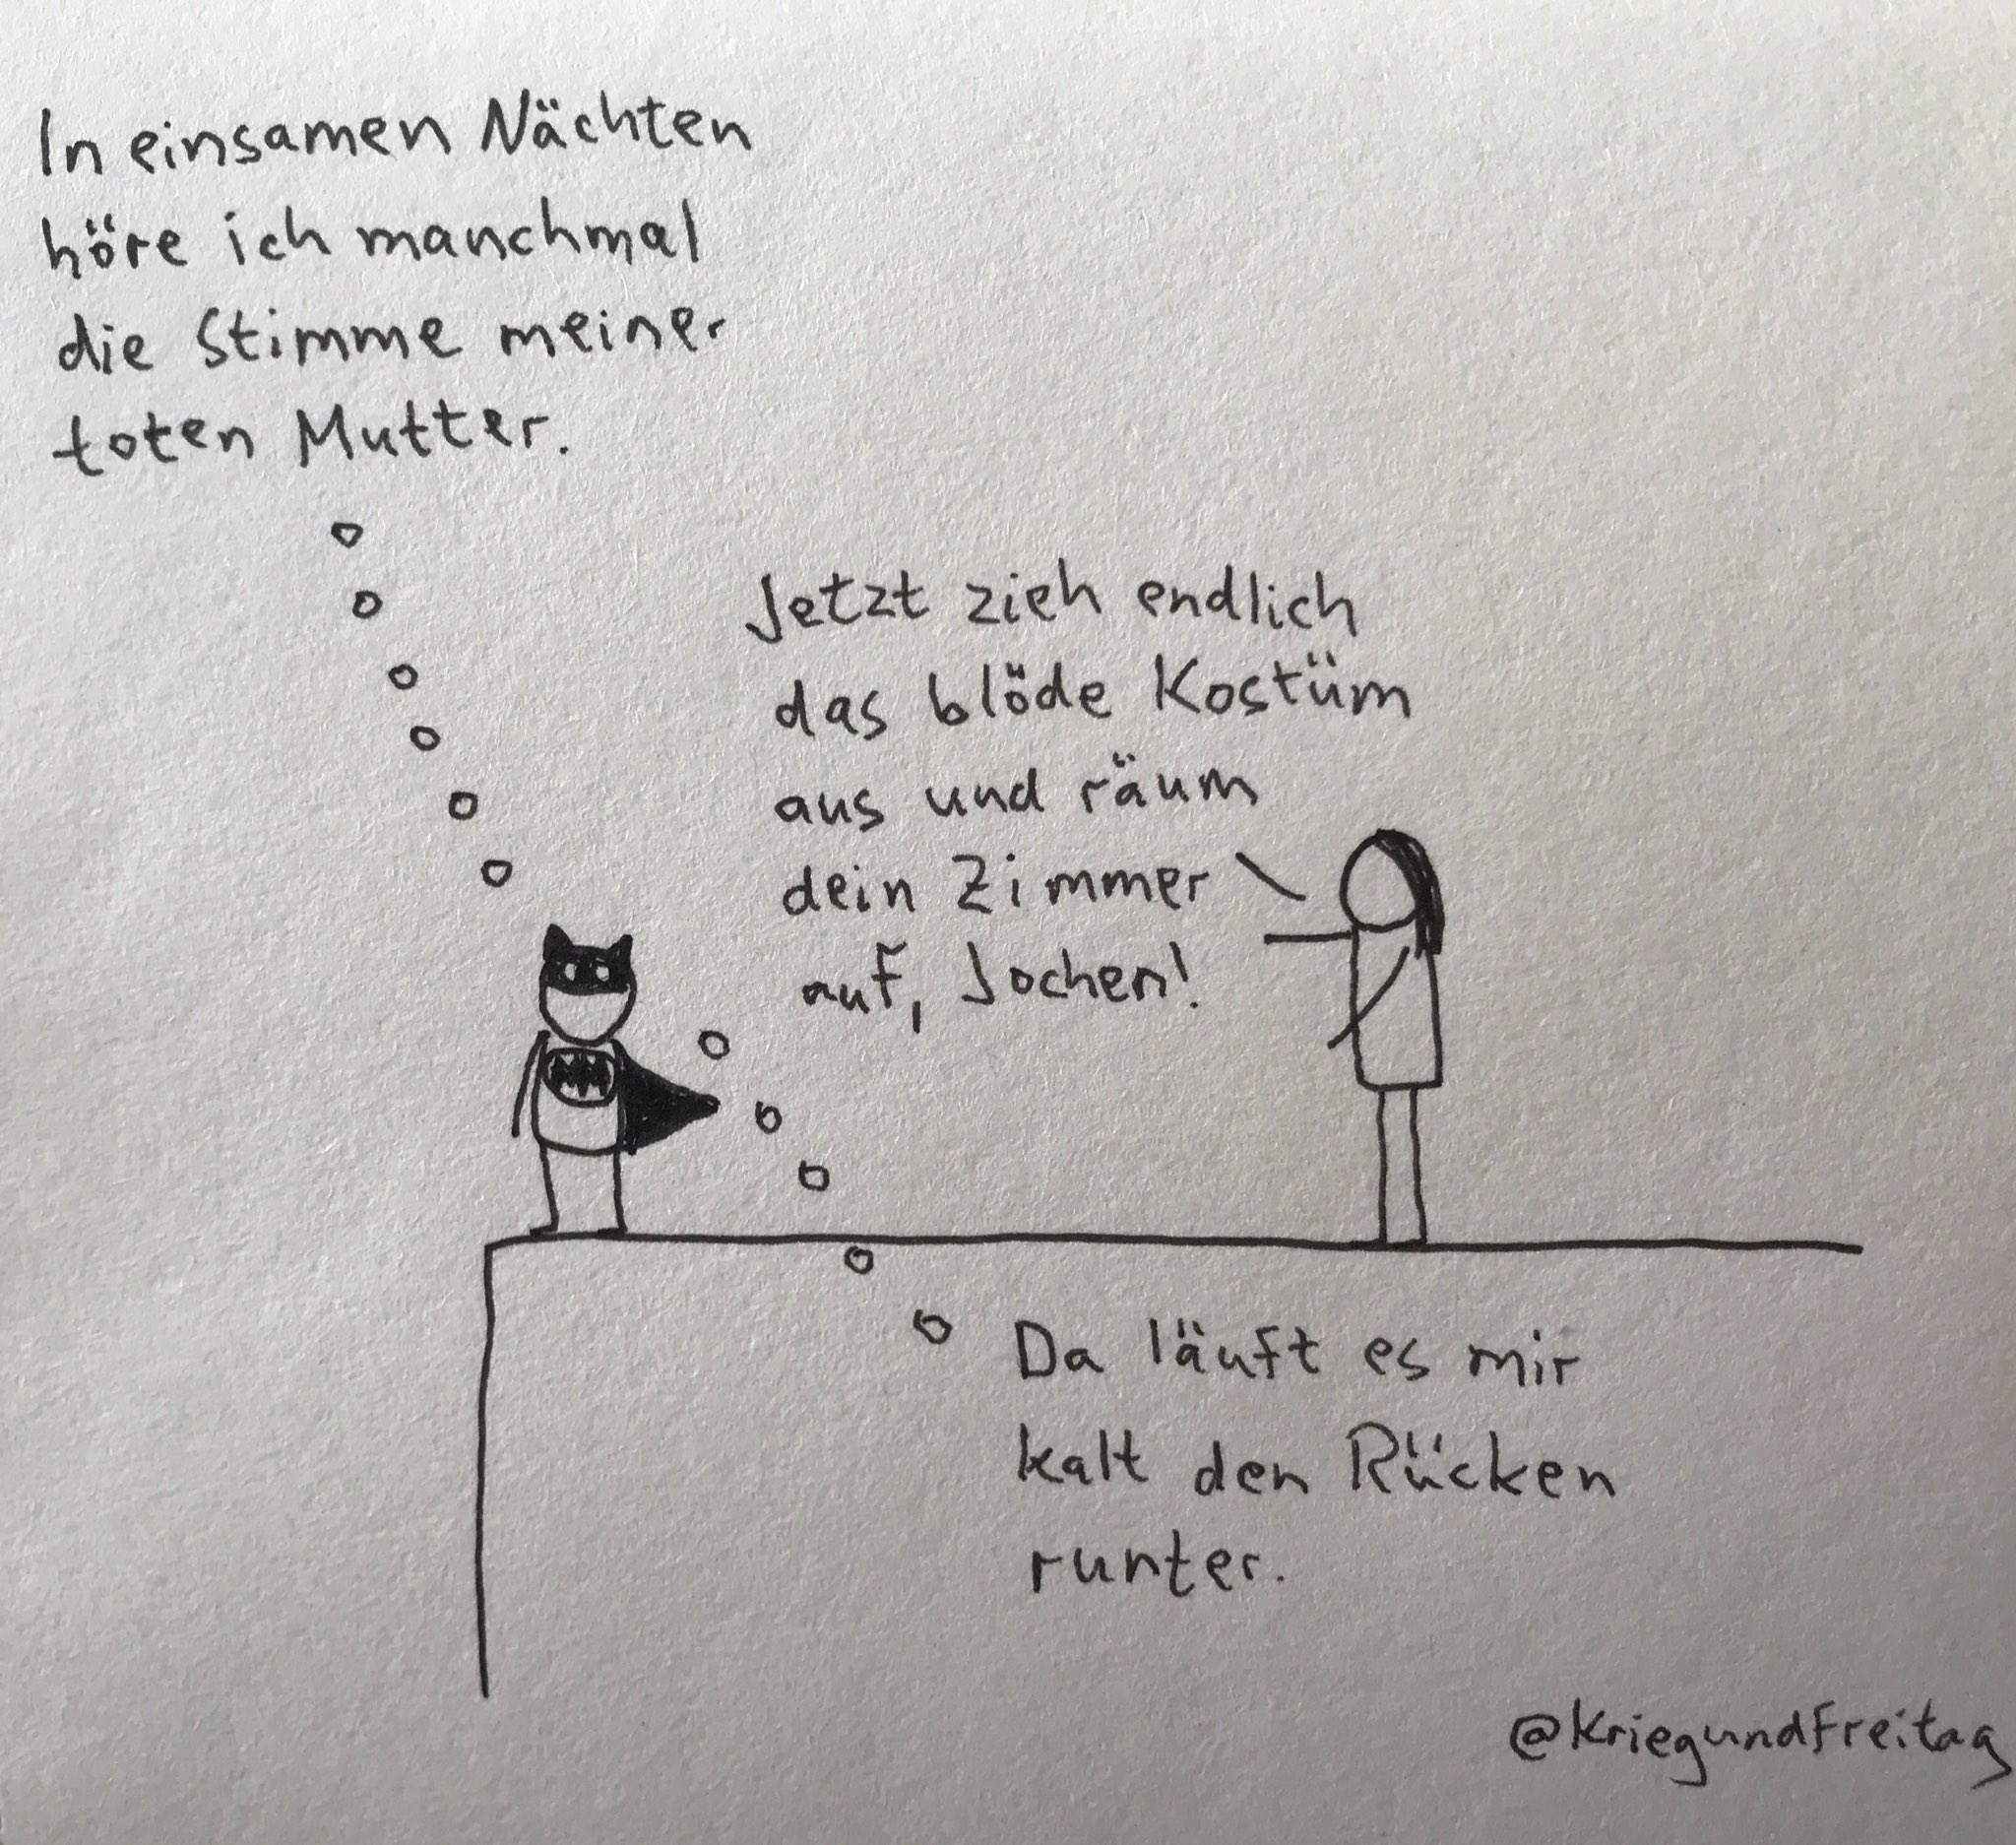 In einsamen Nächten
höre ich manchmal
die Stimme meiner
toten Mutter.
Jetzt zieh endlich
das blöde Kostüm
aus und räum
dein Zimmer
auf, Jochen!
Da läuft es mir
kalt den Rücken
runter.
@kriegundfreitag